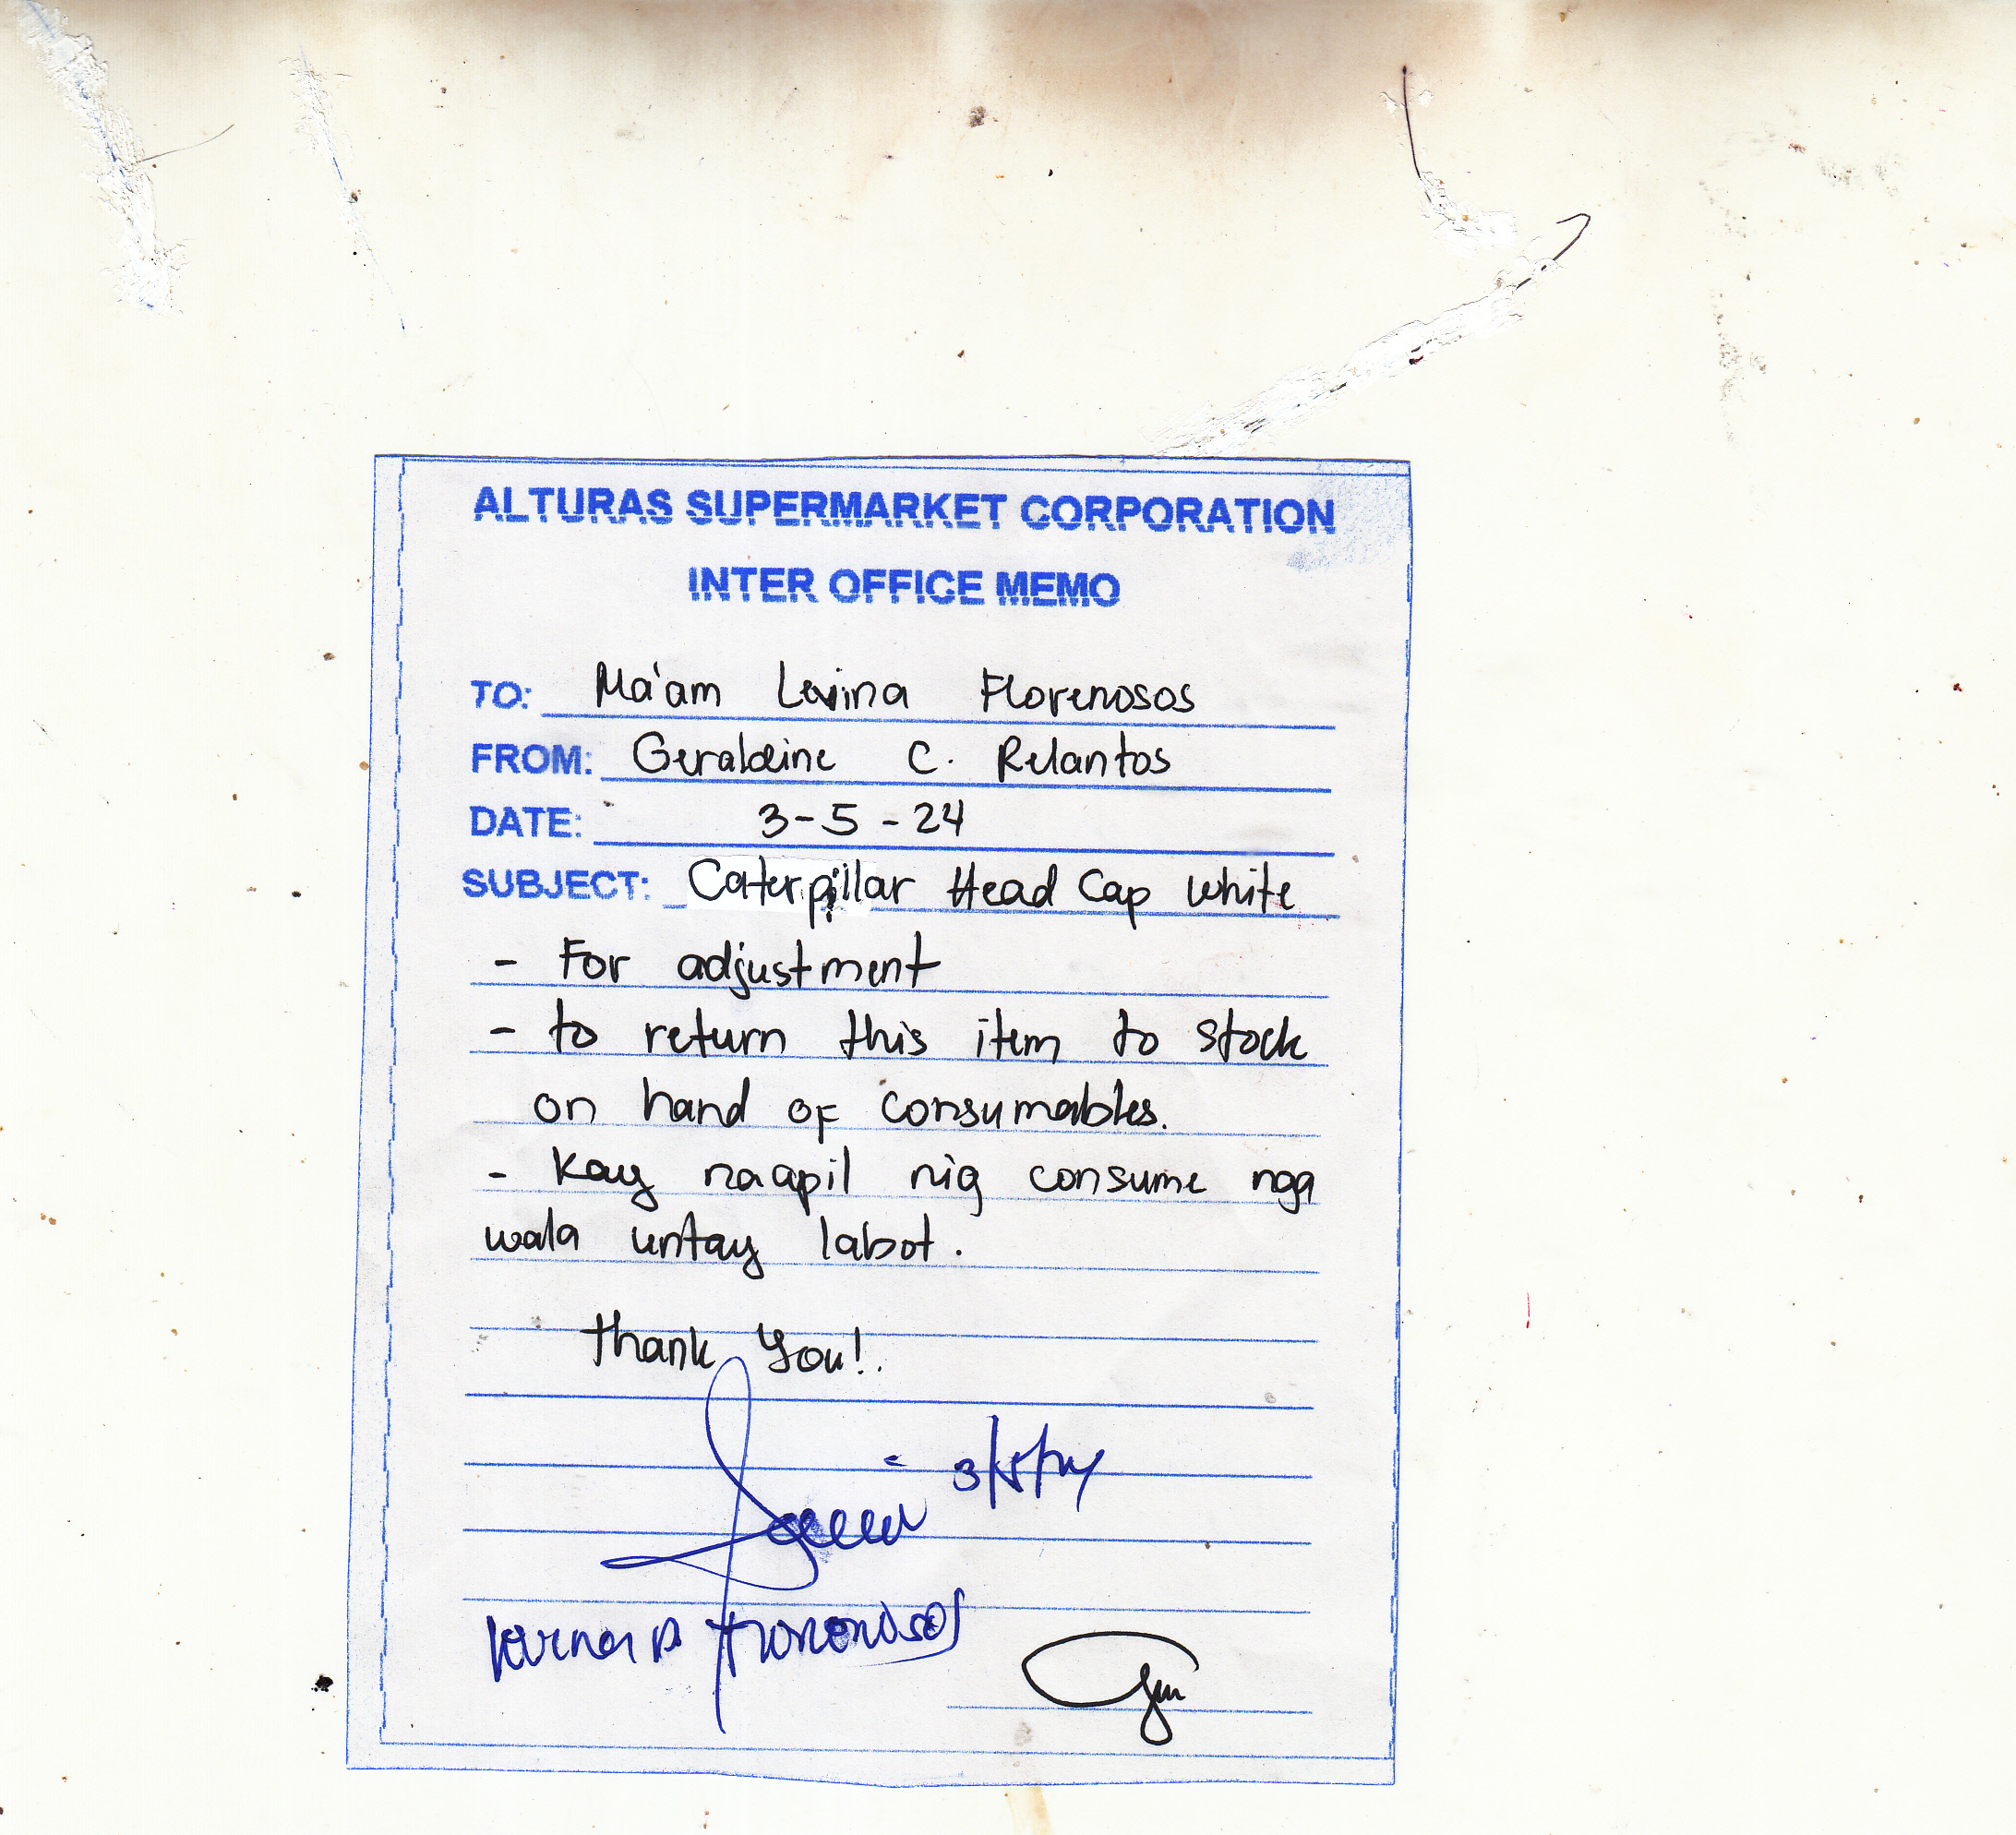 ALTURAS SUPERMARKET CORPORATION
INTER OFFICE MEMO
TO: Ma'am Levina Florenosos
FROM: Geraldine C. Relantos
DATE: 3-5-24
SUBJECT: Caterpillar Head Cap white
- For adjustment
- to return this item to stock
on hand of consumables.
- Kay naapil nig consume nga
wala untay labot.
Thank You!.
3/5/24
Florenosos